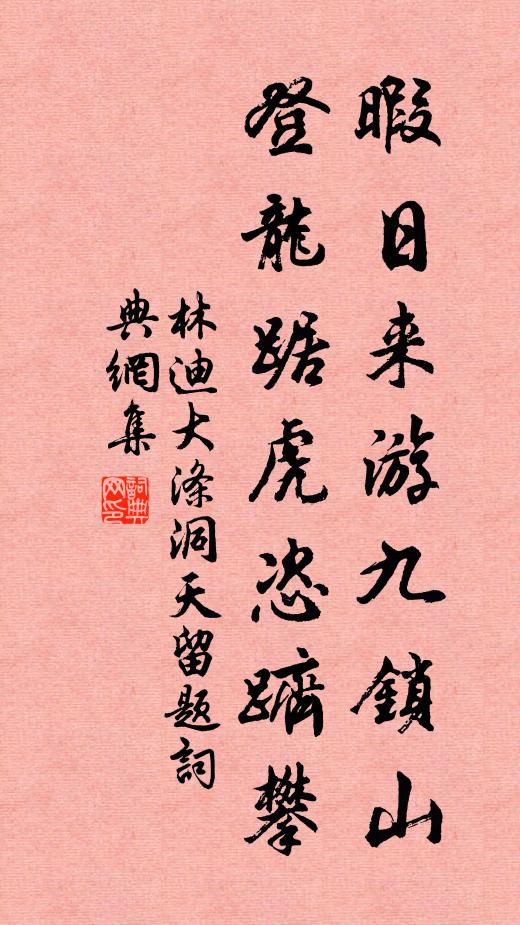 暇日来游九鎖山
登龍踞虎恣躋攀
林迪大滌洞天留題詞
典網集
詞典网印